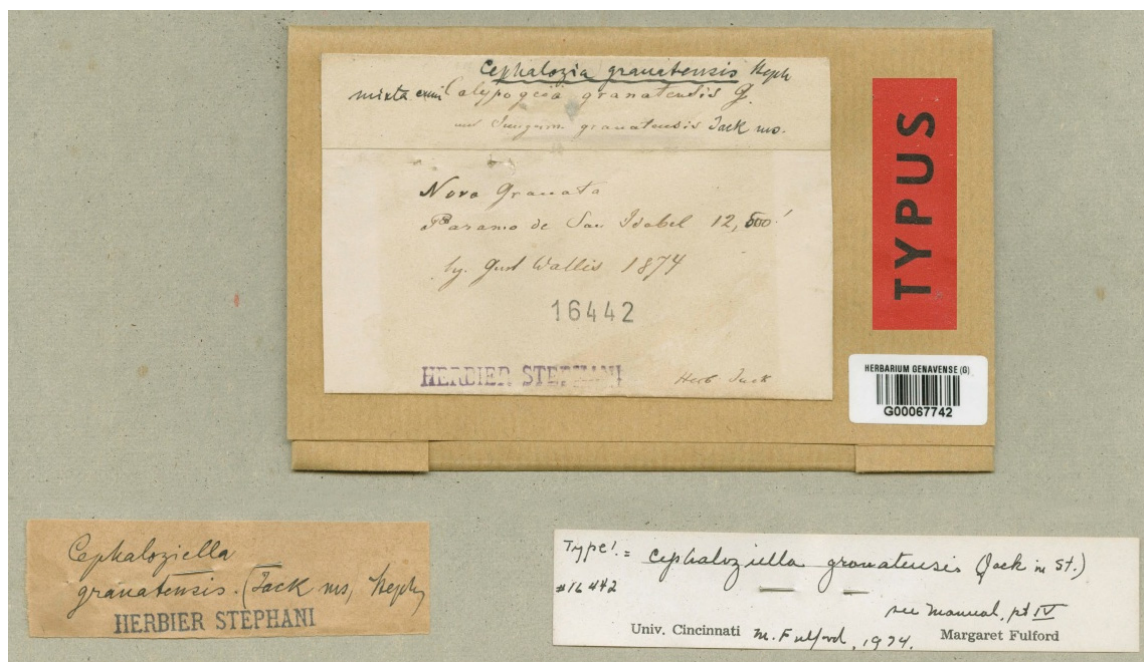 Cephalozia granatensis Steph
mixta cum Calypogeia granatensis G.
granatensis Jack ms.
Nova Granata
Paramo de San Isabel 12,500'
lg. Gust Wallis 1874
16442
HERBIER STEPHANI
Herb Jack
TYPUS
HERBARIUM GENAVENSE (G)
G00067742
Cephaloziella
granatensis. (Jack ms, Steph
HERBIER STEPHANI
Type! = Cephaloziella granatensis (Jack in St.)
#16442
see Manual, pt IV
Univ. Cincinnati M. Fulford, 1974. Margaret Fulford